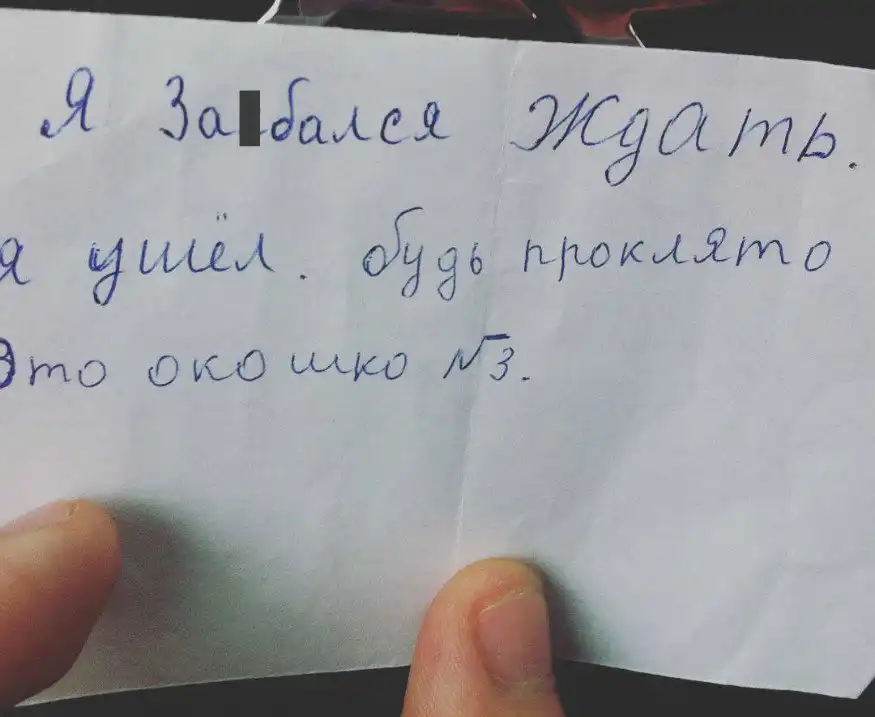 Я За█бался Ждать.
я ушёл. будь проклято
Это окошко №3.